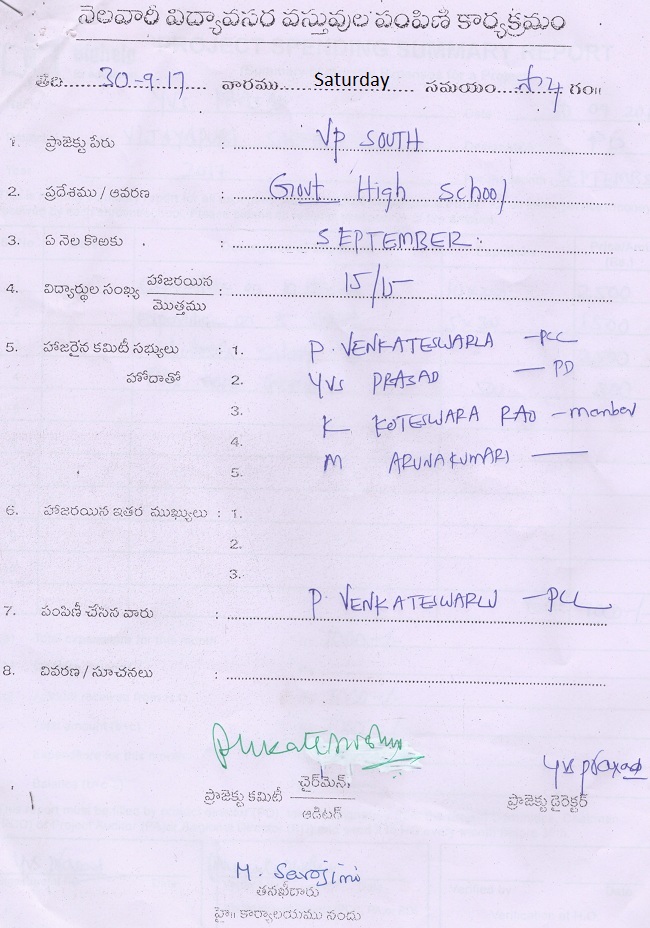 నెలవారి విద్యావసర వస్తువుల పంపిణి కార్యక్రమం
తేది 30-9-17 వారము Saturday సమయం సా 4 గం॥
1. ప్రాజెక్టు పేరు : VP SOUTH
2. ప్రదేశము / ఆవరణ : Govt High School
3. ఏ నెల కొఱకు : SEPTEMBER.
4. విద్యార్థుల సంఖ్య హాజరయిన / మొత్తము : 15/15
5. హాజరైన కమిటీ సభ్యులు : 1. P VENKATESWARLA - PCC
హోదాతో 2. YVS PRASAD - PD
3. K KOTESWARA RAO - member
4. M ARUNAKUMARI
5.
6. హాజరయిన ఇతర ముఖ్యులు : 1.
2.
3.
7. పంపిణీ చేసిన వారు : P. VENKATESWARLU - PCC
8. వివరణ / సూచనలు :
yvs prasad
ప్రాజెక్టు కమిటీ చైర్‌మెన్, / ఆడిటర్
ప్రాజెక్టు డైరెక్టర్
M. Sarojini
తనఖీదారు
హై॥ కార్యాలయము నందు